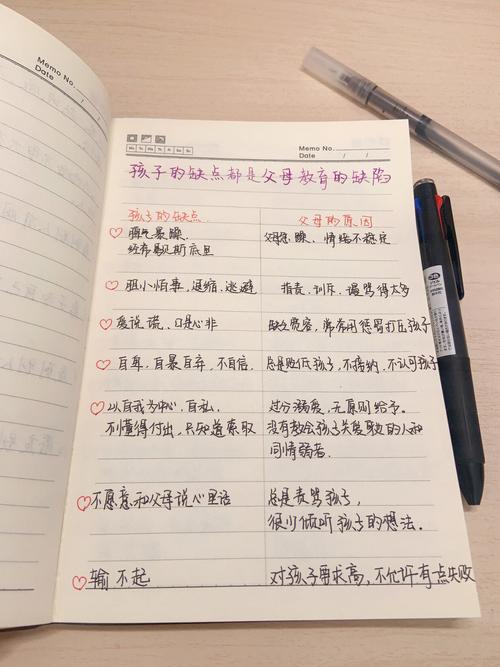 Memo No.
Date / /
Memo No.
Date / /
孩子的缺点都是父母教育的缺陷
孩子的缺点 父母的原因
脾气暴躁、 父母急躁、情绪不稳定
经常歇斯底里
胆小怕事,退缩、逃避 指责、训斥、谩骂得太多
爱说谎、口是心非 缺乏宽容,常常用惩罚打压孩子
自卑、自暴自弃,不自信. 总是贬低孩子,不接纳,不认可孩子
以自我为中心,自私. 过分溺爱,无原则给予.
不懂得付出,只知道索取 没有教给孩子关爱他的人和
同情弱者.
不愿意和父母说心里话 总是责骂孩子,
很少倾听孩子的想法.
输不起 对孩子要求高,不允许有点失败